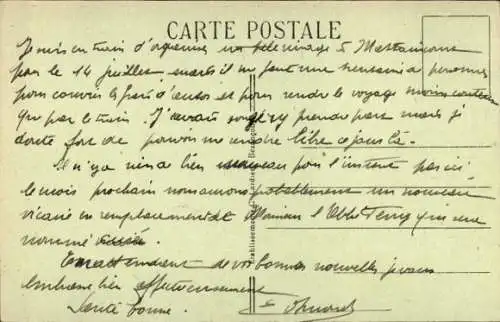 CARTE POSTALE
Je suis en train d'organiser un pèlerinage à Mattaincourt
pour le 14 juillet, mais il me faut une trentaine de personnes
pour couvrir les frais d'autos et pour rendre le voyage moins coûteux
que par le train. J'aurais songé y prendre part mais je
doute fort de pouvoir me rendre libre ce jour là.
Il n'y a rien de bien nouveau pour l'instant par ici,
le mois prochain nous aurons probablement un nouveau
vicaire en remplacement de Monsieur l'Abbé qui est
nommé
En attendant de vos bonnes nouvelles je vous
embrasse bien affectueusement
Santé bonne.